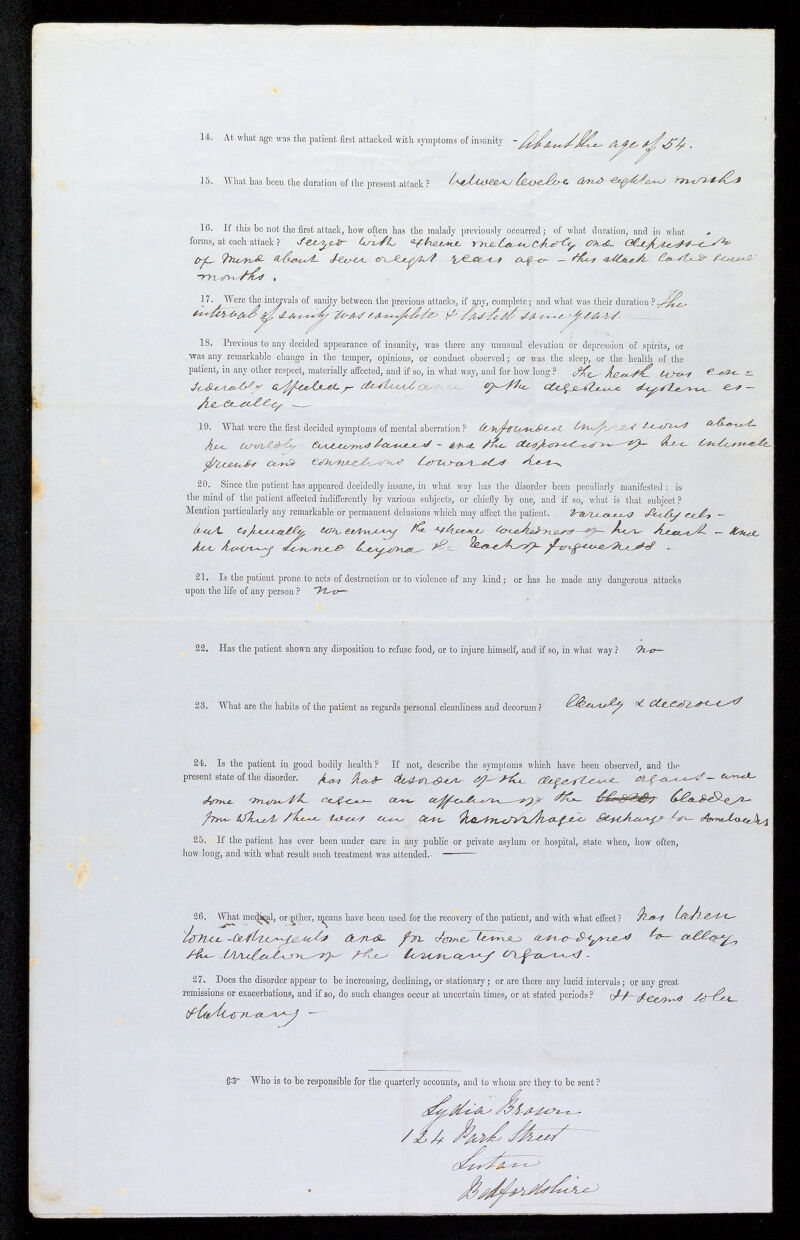 14. At what age was the patient first attacked with symptoms of insanity - About the age of 54.
15. What has been the duration of the present attack? between twelve and eighteen months
16. If this be not the first attack, how often has the malady previously occurred; of what duration, and in what
forms, at each attack? seized with extreme melancholy and depression
of mind about seven or eight years ago - this attack lasted some
months.
17. Were the intervals of sanity between the previous attacks, if any, complete; and what was their duration? The
interval of sanity was complete & lasted some years
18. Previous to any decided appearance of insanity, was there any unusual elevation or depression of spirits, or
was any remarkable change in the temper, opinions, or conduct observed; or was the sleep, or the health of the
patient, in any other respect, materially affected, and if so, in what way, and for how long? The health was con=
siderably affected, disturbance of the digestive system es-
pecially -
19. What were the first decided symptoms of mental aberration? unfounded impressions about
her worldly circumstances - and the disposition of her intimate
friends and connections towards her
20. Since the patient has appeared decidedly insane, in what way has the disorder been peculiarly manifested: is
the mind of the patient affected indifferently by various subjects, or chiefly by one, and if so, what is that subject?
Mention particularly any remarkable or permanent delusions which may affect the patient. various subjects -
but especially concerning the extreme wickedness of her heart - and
her having sinned beyond the reach of forgiveness -
21. Is the patient prone to acts of destruction or to violence of any kind; or has he made any dangerous attacks
upon the life of any person? no
22. Has the patient shown any disposition to refuse food, or to injure himself, and if so, in what way? no
23. What are the habits of the patient as regards personal cleanliness and decorum? Cleanly & decorous
24. Is the patient in good bodily health? If not, describe the symptoms which have been observed, and the
present state of the disorder. has had disorder of the digestive organs - and
some month since an affection of the bladder
from which there was an hemorrhagic discharge for some weeks
25. If the patient has ever been under care in any public or private asylum or hospital, state when, how often,
how long, and with what result such treatment was attended.
26. What medical, or other, means have been used for the recovery of the patient, and with what effect? has taken
tonic-astringents and for some time anodynes to allay
the irritation of the urinary organs.
27. Does the disorder appear to be increasing, declining, or stationary; or are there any lucid intervals; or any great
remissions or exacerbations, and if so, do such changes occur at uncertain times, or at stated periods? It seems to be
stationary -
☞ Who is to be responsible for the quarterly accounts, and to whom are they to be sent?
Lydia Brown
124 Park Street
Luton
Bedfordshire